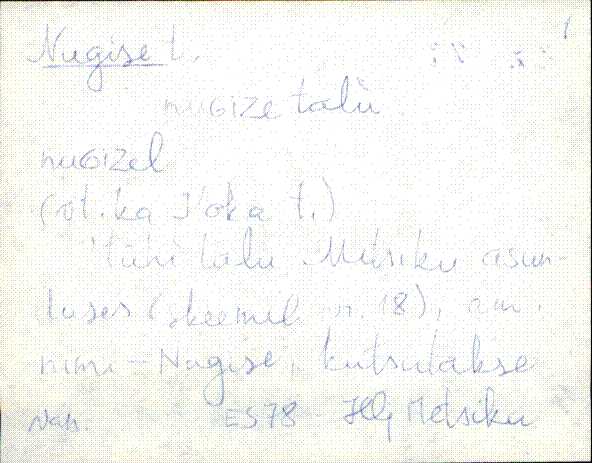 1
Nugise t.
nuGIze talù
nuGIzel
(vt. ka Joka t.)
talu Metsiku asun-
duses (skeemil nr. 18), am.
nimi - Nugise, kutsutakse
ES78 HLj Metsiku